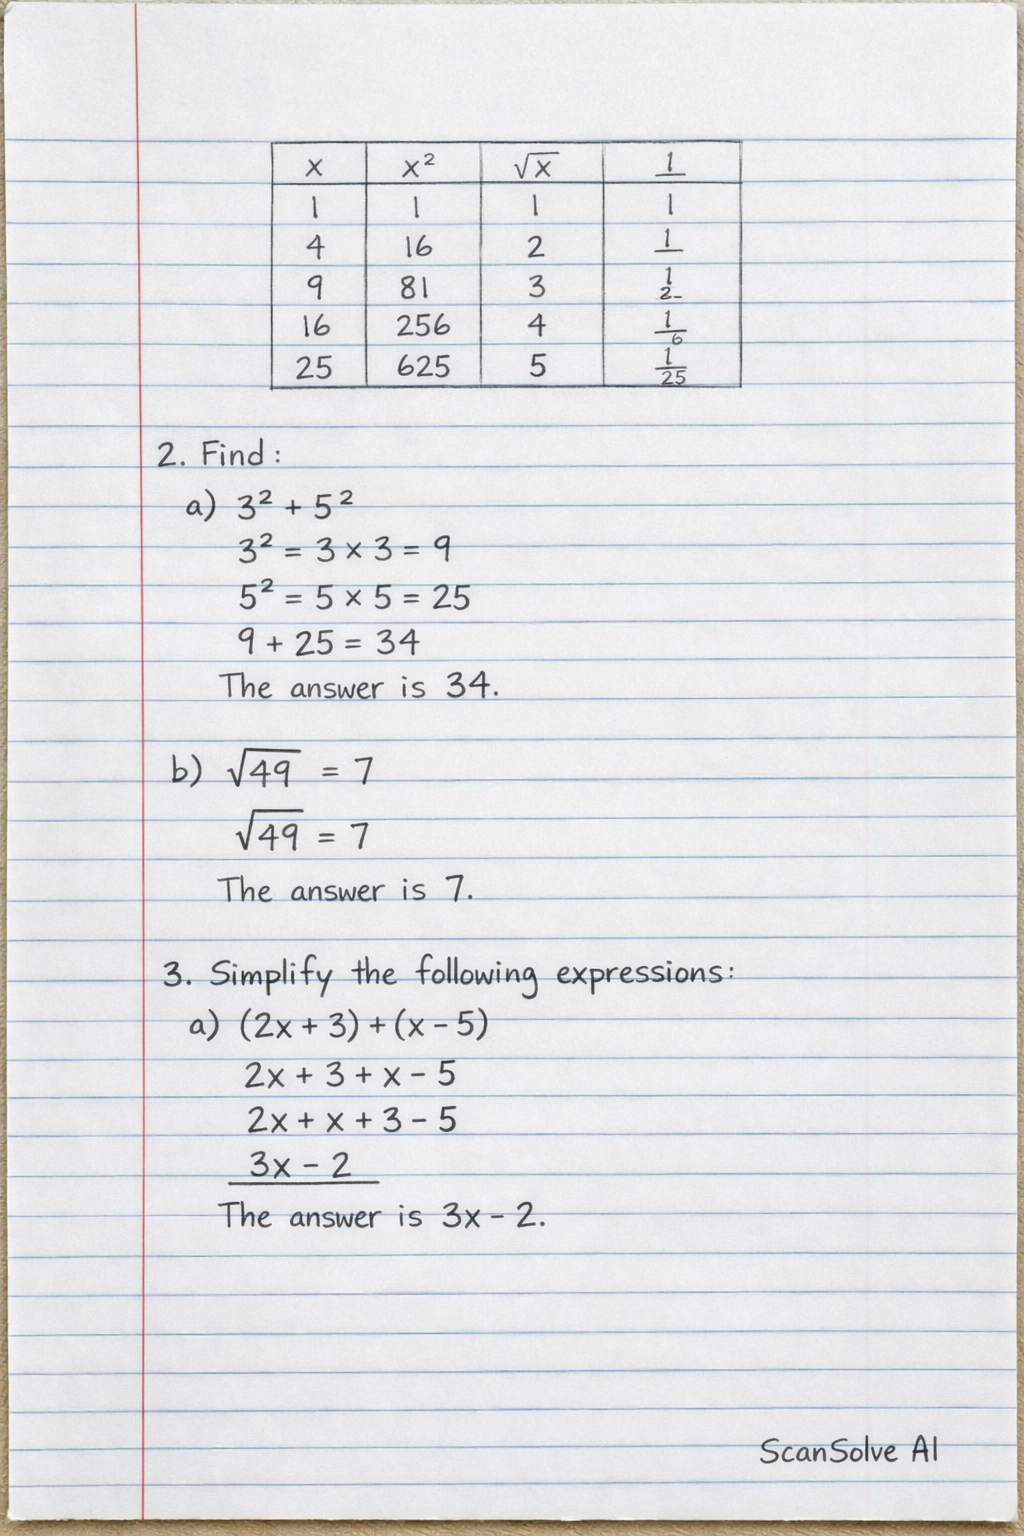 x x² √x 1
1 1 1 1
4 16 2 1
9 81 3 1/2-
16 256 4 1/6
25 625 5 1/25
2. Find:
a) 3² + 5²
3² = 3 × 3 = 9
5² = 5 × 5 = 25
9 + 25 = 34
The answer is 34.
b) √49 = 7
√49 = 7
The answer is 7.
3. Simplify the following expressions:
a) (2x + 3) + (x - 5)
2x + 3 + x - 5
2x + x + 3 - 5
3x - 2
The answer is 3x - 2.
ScanSolve AI